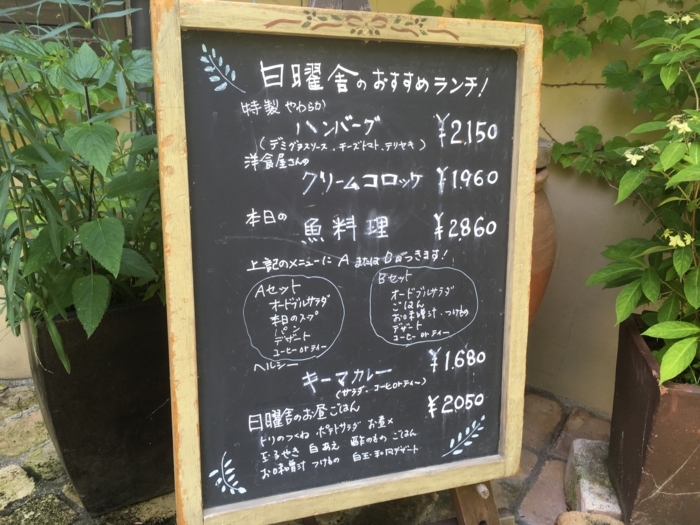 日曜舎のおすすめランチ!
特製 やわらか
ハンバーグ ¥2,150
(デミグラスソース、チーズトマト、テリヤキ)
洋食屋さんの
クリームコロッケ ¥1,960
本日の
魚料理 ¥2,860
上記のメニューに A または Bがつきます!
Aセット
オードブルサラダ
本日のスープ
パン
デザート
コーヒー or ティー
Bセット
オードブルサラダ
ごはん
お味噌汁・つけもの
デザート
コーヒー or ティー
ヘルシー
キーマカレー ¥1,680
(サラダ、コーヒorティー)
日曜舎のお昼ごはん ¥2050
トリのつくね ポテトサラダ
白あえ 酢のもの ごはん
お味噌汁 つけもの 白玉和風デザート